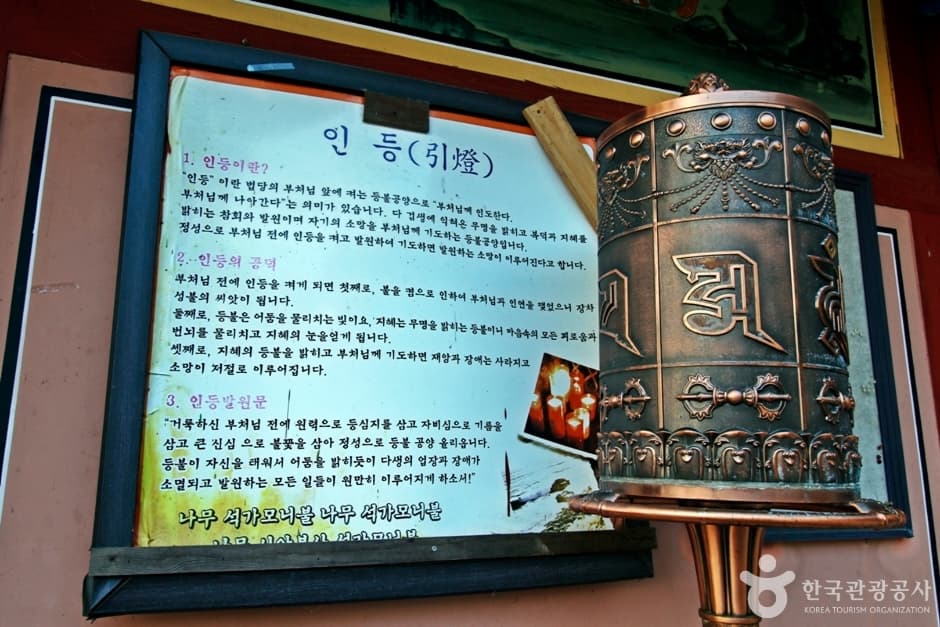 인 등(引燈)
1. 인등이란?
"인등" 이란 법당의 부처님 앞에 켜는 등불공양으로 "부처님께 인도한다.
부처님께 나아간다"는 의미가 있습니다. 다 겁생에 익혀온 무명을 밝히고 복덕과 지혜를
밝히는 참회와 발원이며 자기의 소망을 부처님께 기도하는 등불공양입니다.
정성으로 부처님 전에 인등을 켜고 발원하여 기도하면 발원하는 소망이 이루어진다고 합니다.
2. 인등의 공덕
부처님 전에 인등을 켜게 되면 첫째로, 불을 켬으로 인하여 부처님과 인연을 맺었으니 장차
성불의 씨앗이 됩니다.
둘째로, 등불은 어둠을 물리치는 빛이요, 지혜는 무명을 밝히는 등불이니 마음속의 모든 괴로움과
번뇌를 물리치고 지혜의 눈을얻게 됩니다.
셋째로, 지혜의 등불을 밝히고 부처님께 기도하면 재앙과 장애는 사라지고
소망이 저절로 이루어집니다.
3. 인등발원문
"거룩하신 부처님 전에 원력으로 등심지를 삼고 자비심으로 기름을
삼고 큰 신심 으로 불꽃을 삼아 정성으로 등불 공양 올리옵니다.
등불이 자신을 태워서 어둠을 밝히듯이 다생의 업장과 장애가
소멸되고 발원하는 모든 일들이 원만히 이루어지게 하소서!"
나무 석가모니불 나무 석가모니불
나무 시아본사 석가모니불
한국관광공사
KOREA TOURISM ORGANIZATION